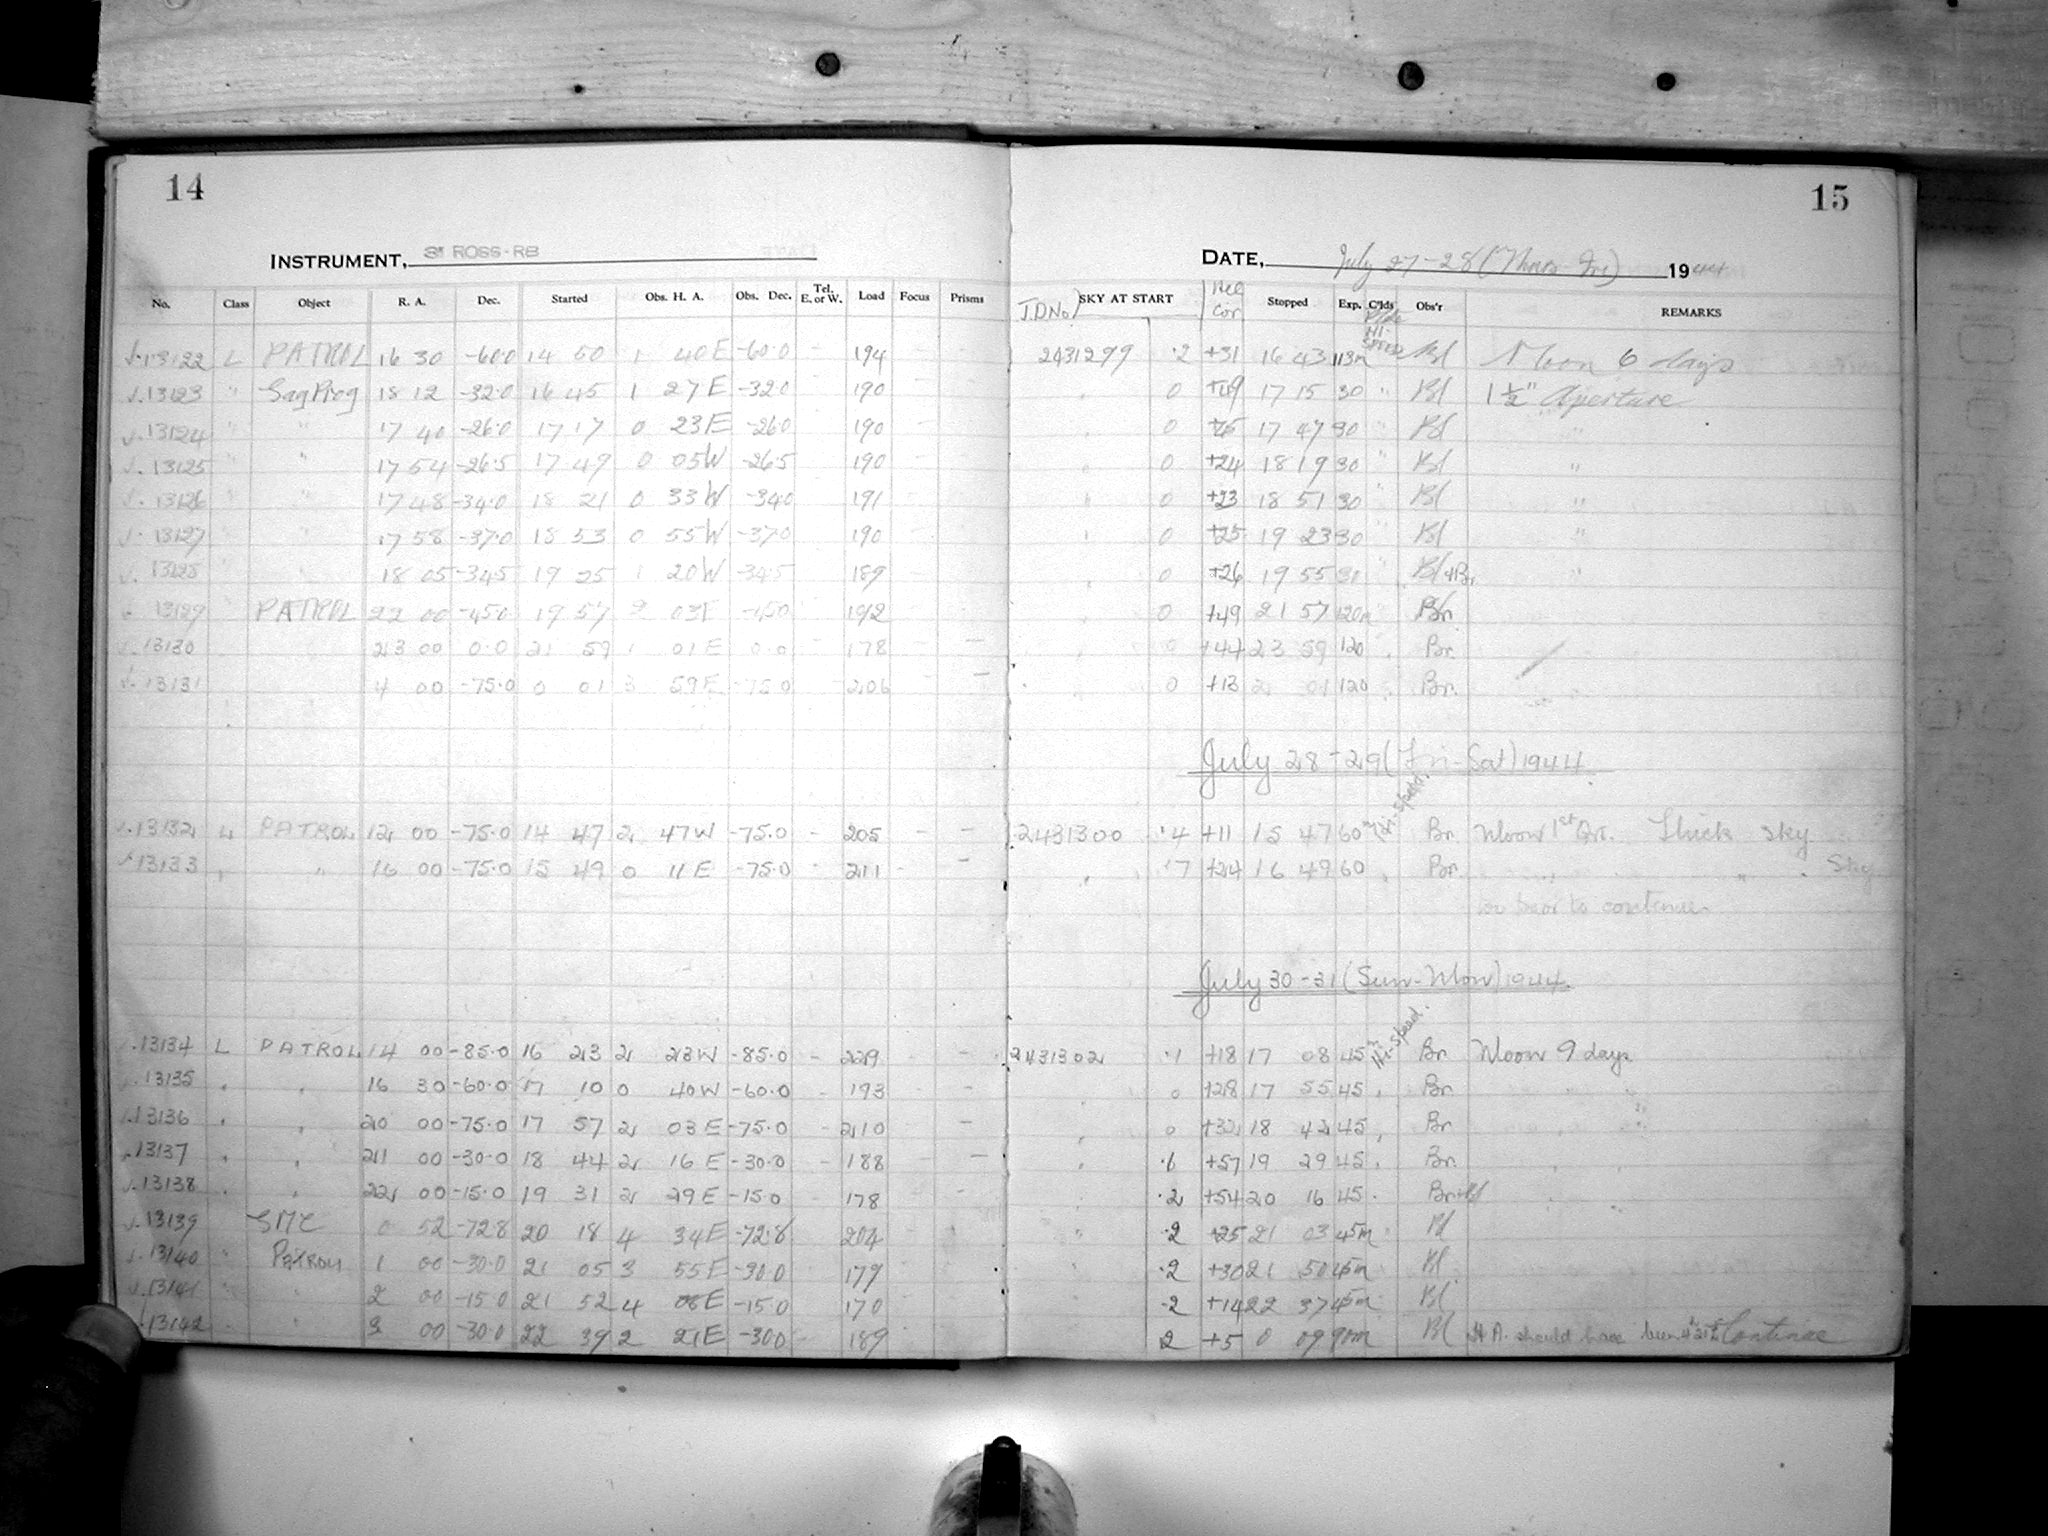 14
INSTRUMENT, 3" ROSS-RB
No. Class Object R. A. Dec. Started Obs. H. A. Obs. Dec. Tel. E. or W. Load Focus Prisms
13122 L PATROL 16 30 -60.0 14 50 1 40E -60.0 194
13123 " Sag Preg 18 12 -32.0 16 45 1 27E -32.0 190
13124 " " 17 40 -26.0 17 17 0 23E -26.0 190
13125 " " 17 54 -26.5 17 49 0 05W -26.5 190
13126 " " 17 48 -34.0 18 21 0 33W -34.0 191
13127 " " 17 58 -37.0 18 53 0 55W -37.0 190
13128 " " 18 05 -34.5 19 25 1 20W -34.5 189
13129 " PATROL 22 00 -45.0 19 57 2 03E -45.0 192
13130 23 00 0.0 21 59 1 01E 0.0 178
13131 4 00 -75.0 0 01 3 59E -75.0 206
13132 L PATROL 12 00 -75.0 14 47 2 47W -75.0 205
13133 " " 16 00 -75.0 15 49 0 11E -75.0 211
13134 L PATROL 14 00 -85.0 16 23 2 23W -85.0 229
13135 " " 16 30 -60.0 17 10 0 40W -60.0 193
13136 " " 20 00 -75.0 17 57 2 03E -75.0 210
13137 " " 21 00 -30.0 18 44 2 16E -30.0 188
13138 " " 22 00 -15.0 19 31 2 29E -15.0 178
13139 SMC 0 52 -72.8 20 18 4 34E -72.8 204
13140 " PATROL 1 00 -30.0 21 05 3 55E -30.0 179
13141 " " 2 00 -15.0 21 52 4 08E -15.0 170
13142 " 3 00 -30.0 22 39 2 21E -30.0 189
15
DATE, July 27-28 (Thurs Fri) 1944
J.D.No SKY AT START Hel Cor. Stopped Exp. C'lds Obs'r REMARKS
Plate HI-SPEED
2431299 .2 +31 16 43 113m Bl Moon 6 days
" 0 +49 17 15 30 " Bl 1½" Aperture
" 0 17 47 30 " Bl "
" 0 +24 18 19 30 " Bl "
" 0 +23 18 51 30 " Bl "
" 0 +25 19 23 30 " Bl "
" 0 +26 19 55 30 " Bl+Br "
" 0 +49 21 57 120m " Br.
" 0 +44 23 59 120 " Br.
" 0 +13 2 01 120 " Br.
July 28-29 (Fri-Sat) 1944
2431300 .4 +11 15 47 60m Hi-Speed. Br. Moon 1st Qrt. Thick sky
" .7 +24 16 49 60 " Br. " " Sky
too poor to continue
July 30-31 (Sun-Mon) 1944.
2431302 .1 +18 17 08 45m Hi-Speed. Br. Moon 9 days
" 0 +28 17 55 45 " Br.
" 0 +32 18 42 45 " Br. "
" .1 +57 19 29 45 " Br.
" .2 +54 20 16 45 Br+Bl
" .2 +25 21 03 45m Bl
" .2 +30 21 50 45m Bl
.2 +14 22 37 45m Bl
2 +5 0 09 90m Bl H A. should have been 4h 21m Continue